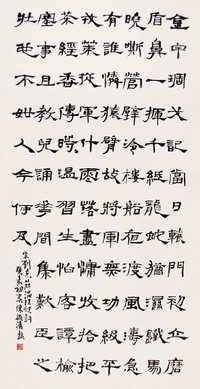 金甲琱戈記當日轅門初立磨
盾鼻一揮千紙龍蛇猶濕鐵馬
曉嘶營壁冷樓船夜渡風濤急
有誰憐猿臂故將軍無功級平
戎策從軍什零落盡慵收拾把
茶經香傳時時溫習生怕客談榆
塞事且教兒誦花間集歎臣之
壯也不如人今何及
宋劉克莊滿江紅詞